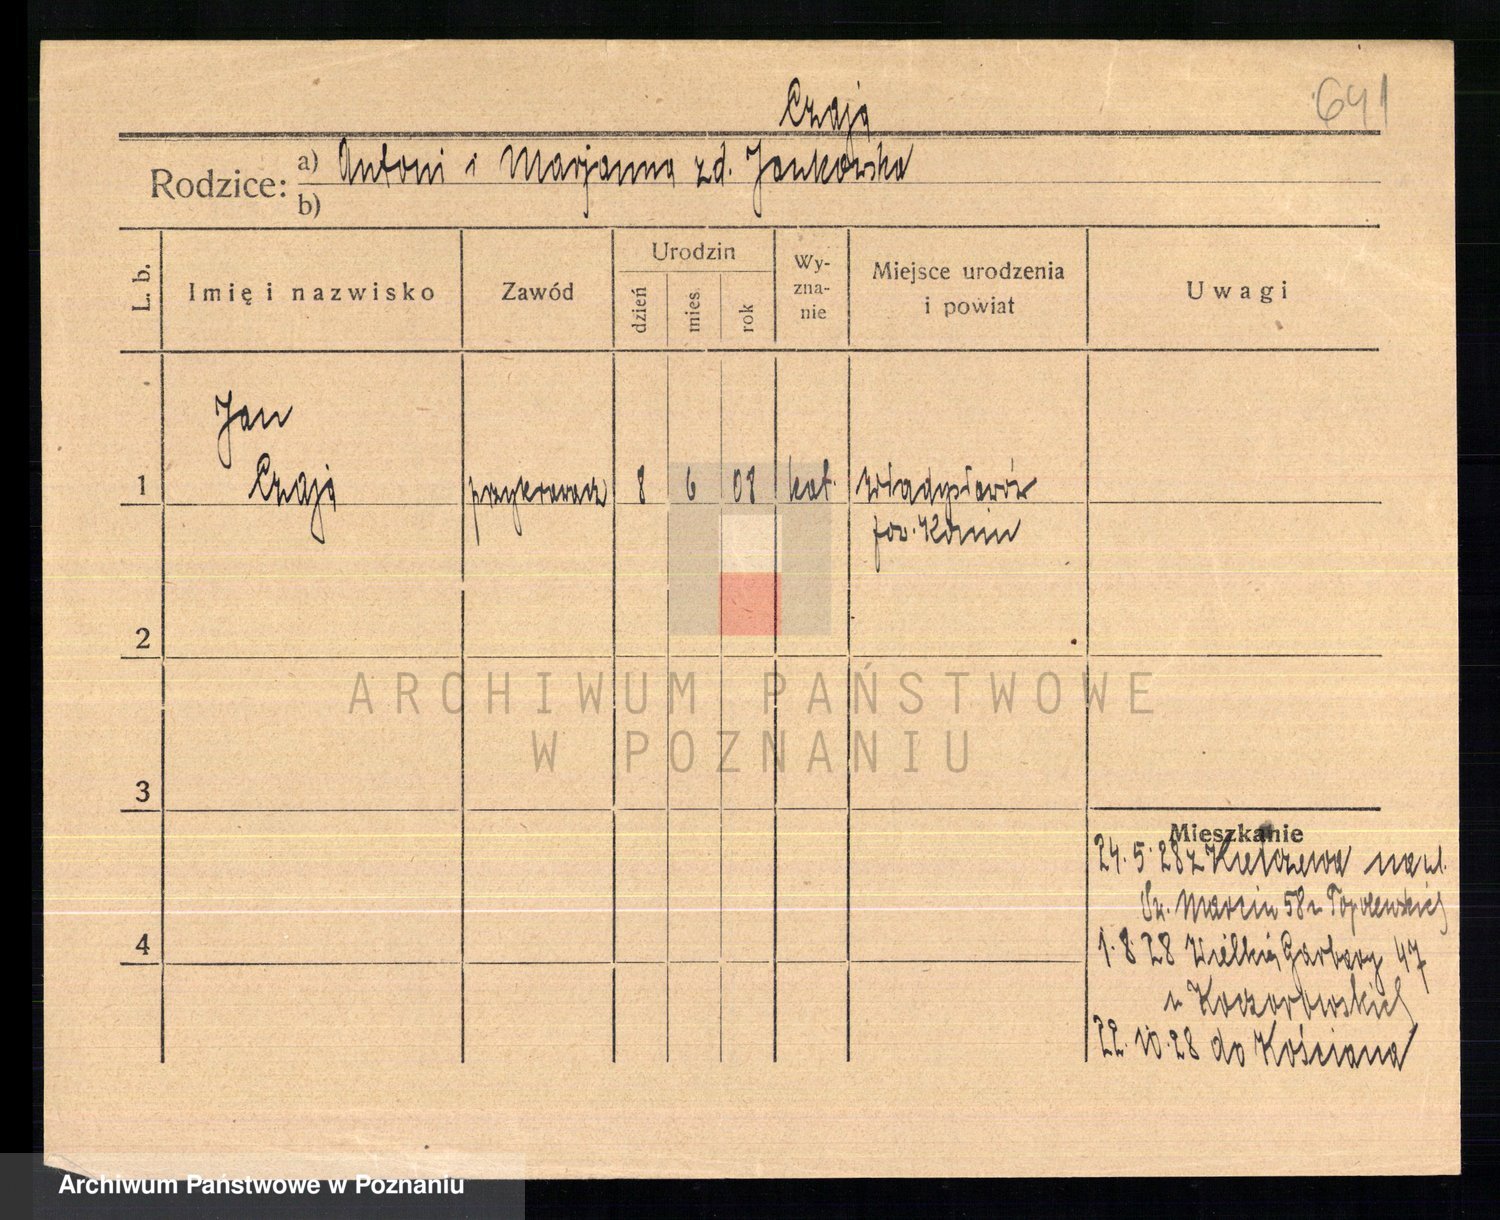 641
Czaja
Rodzice: a) Antoni i Marjanna zd. Jankowska
b)
L. b.
Imię i nazwisko
Zawód
Urodzin
dzień
mies.
rok
Wy-
zna-
nie
Miejsce urodzenia
i powiat
Uwagi
Jan
1 Czaja 8 6 08 kat. Władysławów
pow. Konin
2
3
4
Mieszkanie
24.5.28 z Kiełczewa na ul.
Św. Marcin 58 u Topolewskich
1.8.28 Wielkie Garbary 47
u Koczorowskich
22.10.28 do Kościana
ARCHIWUM PAŃSTWOWE
W POZNANIU
Archiwum Państwowe w Poznaniu